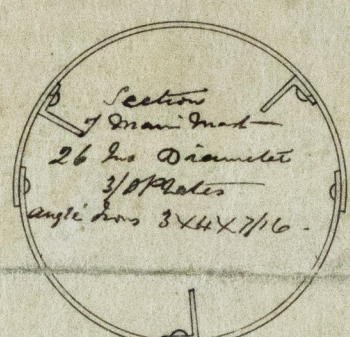 Section
of Main Mast
26 Ins Diameter
3/8 Plates
angle irons 3X4X7/16.